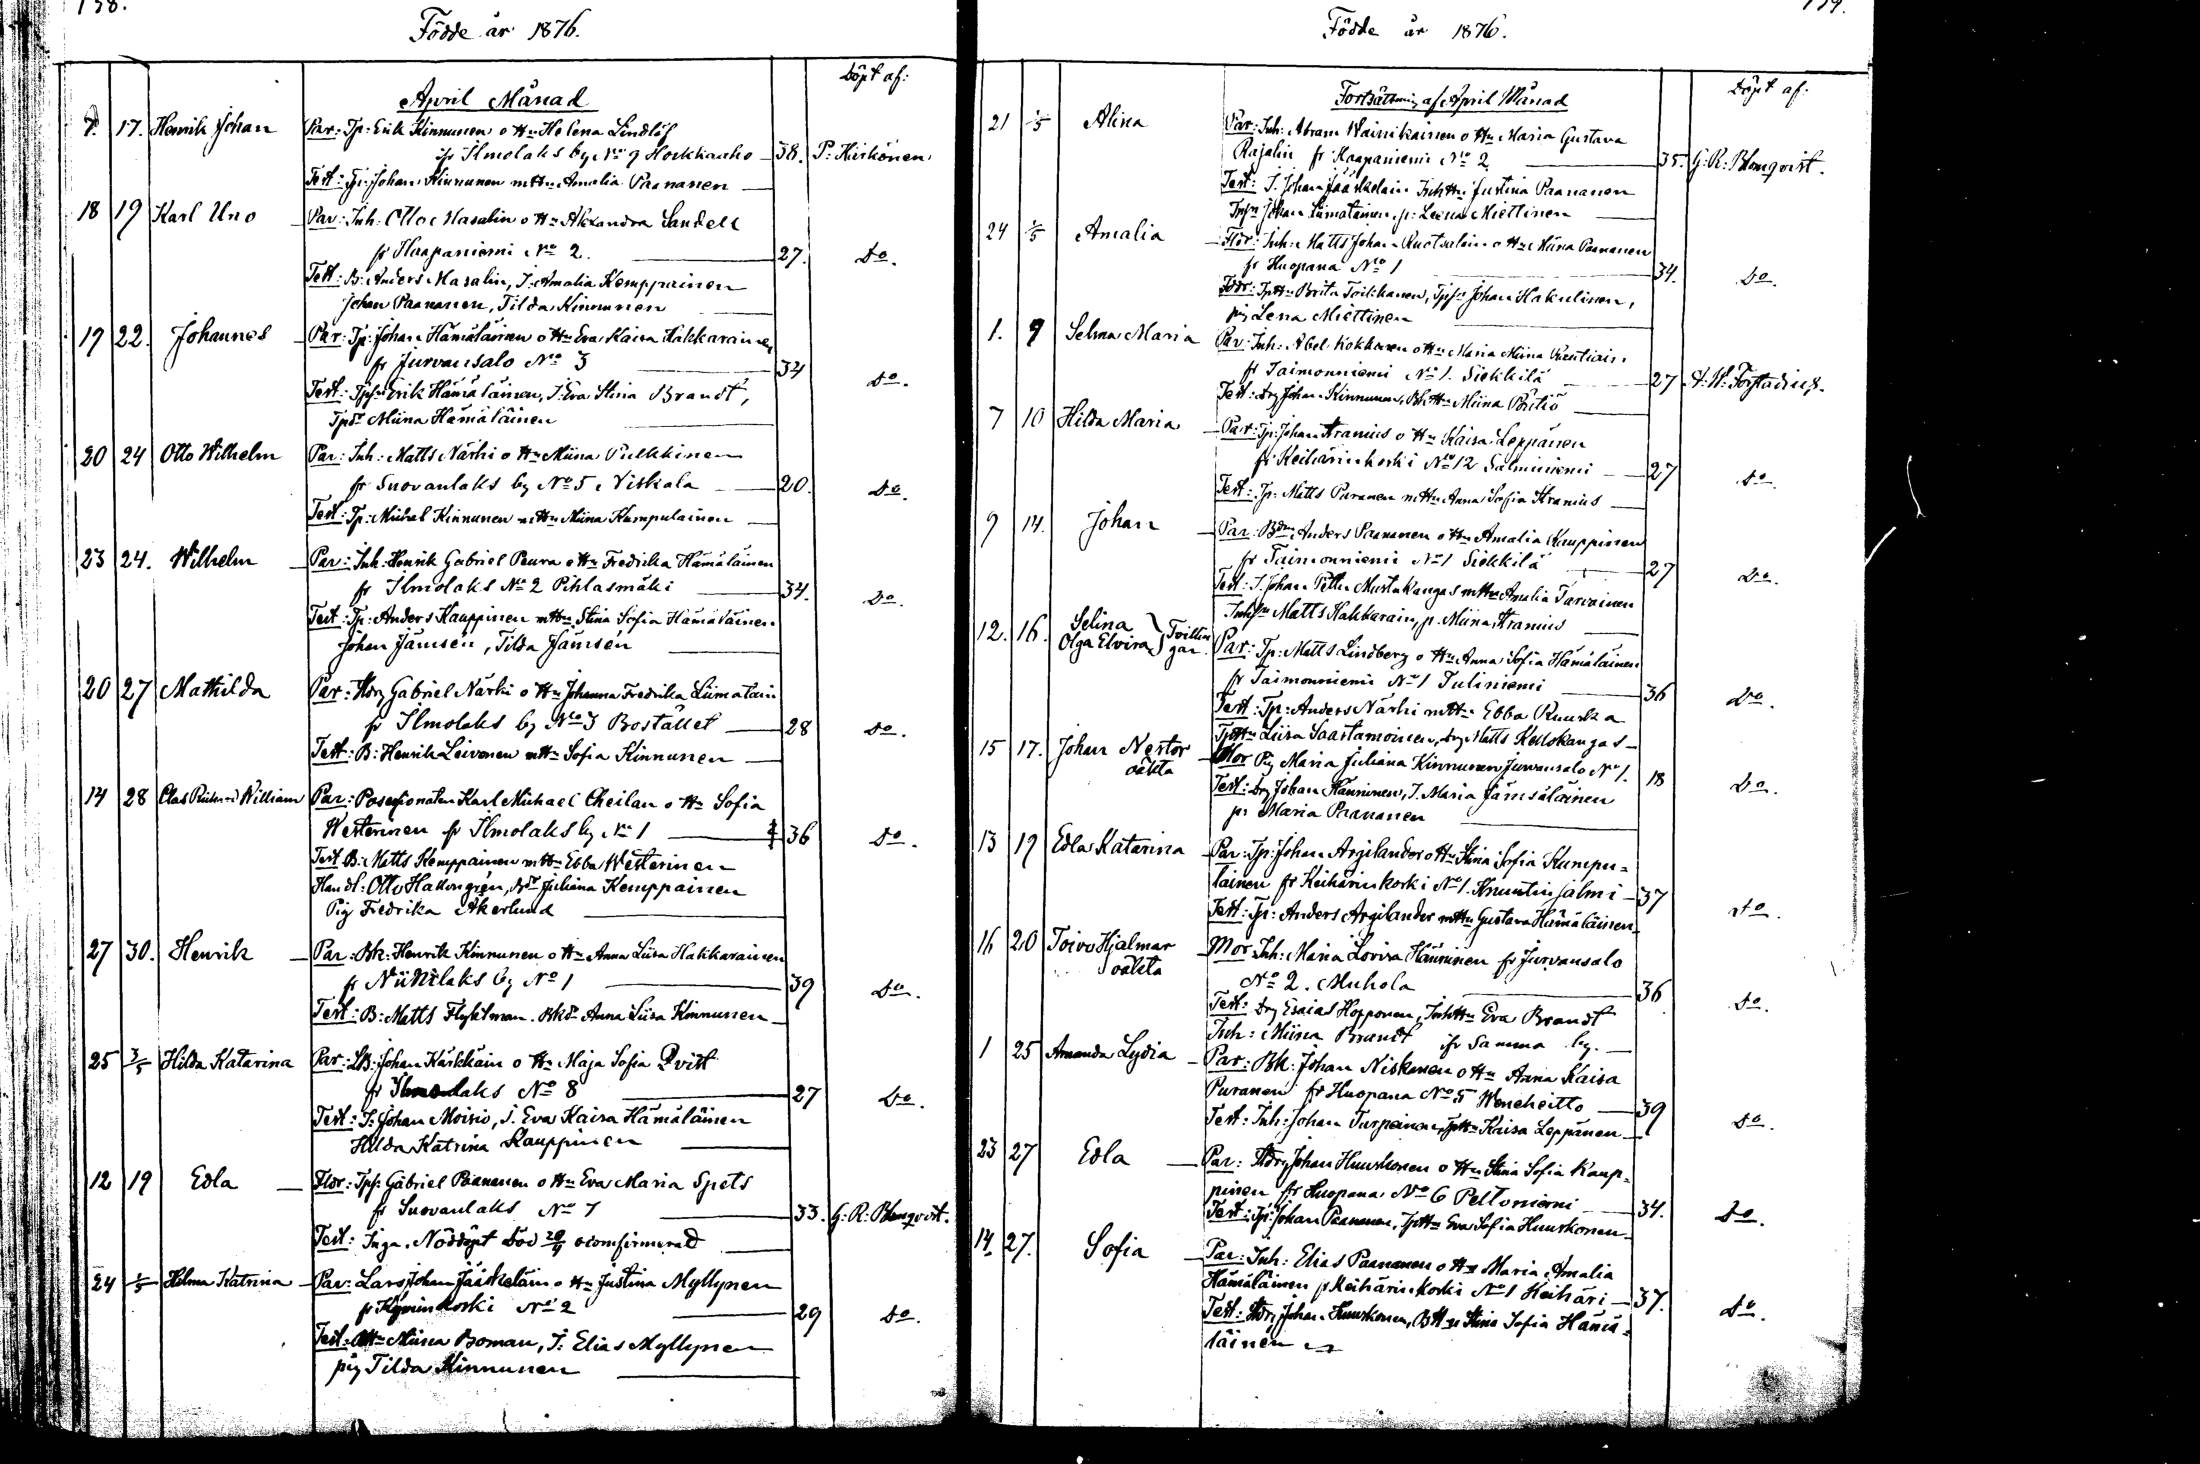 158.
Födde år 1876.
Döpt af:
April Månad
7. 17. Henrik Johan Par: Tp: Erik Kinnunen o Hu Helena Lindlöf
fr Ilmolaks by No 9 Hockkaaho 38. P: Kiiskönen
Test: Tp: Johan Kinnunen m Hu Amalia Paananen
18 19 Karl Uno Par: Inh: Otto Masalin o Hu Alexandra Sandell
fr Haapaniemi No 2. 27. Do.
Test: B: Anders Masalin, I: Amalia Kemppainen
Johan Paananen, Tilda Kinnunen
19 22. Johannes Par: Tp: Johan Hämäläinen o Hu Eva Kaisa Hakkarainen
fr Jurvansalo No 3 34 Do.
Test: Tpsn Erik Hämäläinen, I: Eva Stina Brandt,
Tpdr Miina Hämäläinen
20 24 Otto Wilhelm Par: Inh: Matts Närhi o Hu Miina Pulkkinen
fr Suovanlaks by No 5, Niskala 20. Do.
Test: Tp: Michel Kinnunen m Hu Miina Kumpulainen
23 24. Wilhelm Par: Inh: Henrik Gabriel Peura o Hu Fredrika Hämäläinen
fr Ilmolaks No 2 Pihlasmäki 34. Do.
Test: Tp: Anders Kauppinen m Hu Stina Sofia Hämäläinen
Johan Jämsén, Tilda Jämsén
20 27 Mathilda Par: Hdrg Gabriel Närhi o Hu Johanna Fredrika Liimatain
fr Ilmolaks by No 3 Bostället 28 Do.
Test: B: Henrik Leivonen m Hu Sofia Kinnunen
14 28 Clas William Par: Possessionaten Karl Michael Cheilan o Hu Sofia
Westerinen fr Ilmolaks by No 1 36 Do.
Test B: Matts Kemppainen m Hu Ebba Westerinen
Handl: Otto Hallongrén, Juliana Kemppainen
Pig Fredrika Åkerlund
27 30. Henrik Par: Bk: Henrik Kinnunen o Hu Anna Liisa Hakkarainen
fr Niinilaks by No 1 39 Do.
Test: B: Matts Flyktman. Bkdr Anna Liisa Kinnunen
25 3/5 Hilda Katarina Par: LB: Johan Kärkkäin o Hu Maja Sofia Qvist
fr Ilmolaks No 8 27 Do.
Test: I: Johan Moisio, I. Eva Kaisa Hämäläinen
Hilda Katrina Kauppinen
12 19 Edla Flor: Tpf: Gabriel Paananen o Hu Eva Maria Spets
fr Suovanlaks No 7 33. G: R: Blomqvist.
Test: Inga. Nöddöpt död 20/4 oconfirmerad
24 1/5 Hilma Katrina Par: Lars Johan Jääskeläin o Hu Justina Myllynen
fr Kyminkoski No 2 29 Do.
Test: Miina Boman, I: Elias Myllynen
pig Tilda Kinnunen
159.
Födde år 1876.
Döpt af:
Fortsättning af April Månad
21 1/5 Alina Par: Inh: Abram Wainikainen o Hu Maria Gustava
Rajalin fr Haapaniemi No 2 35. G: R: Blomqvist.
Test: I. Johan Jääskelain InhHu Justina Paananen
Inhsn Johan Liimatainen, p: Leena Miettinen
24 1/5 Amalia Flor: Inh: Matts Johan Ruotsalain o Hu Miina Paananen
fr Huopana No 1 34. Do.
Fddr: TpHu Brita Toiskanen, Tpsn Johan Hakulinen,
pig Lena Miettinen
1. 7 Selma Maria Par: Inh: Abel Kokkonen o Hu Maria Miina Rautiain
fr Taimonniemi No 1. Siekkilä 27 A: W: Forstadius.
Test: Drg Johan Kinnunen, BkHu Miina Britiö
7 10 Hilda Maria Par: Tp: Johan Kranius o Hu Kaisa Leppänen
fr Keihärinkoski No 12 Salminiemi 27 Do.
Test: Tp: Matts Puranen m Hu Anna Sofia Kranius
9 14. Johan Par: Bdm Anders Paananen o Hu Amalia Kauppinen
fr Taimonniemi No 1 Siekkilä 27 Do.
Test: I. Johan Petter Mustakangas m Hu Amalia Tarvainen
Inhsn Matts Hakkarain, p. Miina Kranius
12. 16. Selina
Olga Elvira Tvillin
gar. Par: Tp: Matts Lindberg o Hu Anna Sofia Hämäläinen
fr Taimonniemi No 1 Tuliniemi 36 Do.
Test: Tp: Anders Närhi m Hu Ebba Ruuska
TpHu Liisa Saastamoinen, drg Matts Kellokangas
15 17. Johan Nestor
oäkta Mor Pig Maria Juliana Kinnunen Jurvansalo No 1. 18 Do.
Test: Drg Johan Hänninen, I. Maria Jämsäläinen
pr Maria Paananen
13 19 Edla Katarina Par: Tp: Johan Argilander o Hu Stina Sofia Kumpu=
lainen fr Keihärinkoski No 1. Knuutinsalmi 37 Do.
Test: Tp: Anders Argilander m Hu Gustava Hämäläinen
16 20 Toivo Hjalmar
oäkta Mor Inh: Maria Lovisa Hänninen fr Jurvansalo
No 2. Muhola 36 Do.
Test: Drg Esaias Hopponen, InhHu Eva Brandt
Inh: Miina Brandt fr Samma by.
1 25 Amanda Lydia Par: Bk: Johan Niskanen o Hu Anna Kaisa
Puranen fr Huopana No 5 Weneheitto 39 Do.
Test: Inh: Johan Turpeinen, TpHu Kaisa Leppänen
23 27 Edla Par: Hdrg Johan Huuskonen o Hu Stina Sofia Kaup=
pinen fr Huopana No 6 Peltoniemi 34. Do.
Test: Tp: Johan Paananen, TpHu Eva Sofia Huuskonen
14 27. Sofia Par: Inh: Elias Paananen o Hu Maria Amalia
Hämäläinen fr Keihärinkoski No 1 Keihäri 37. Do.
Test: Hdrg Johan Huuskonen, BHu Stina Sofia Hämä=
läinen